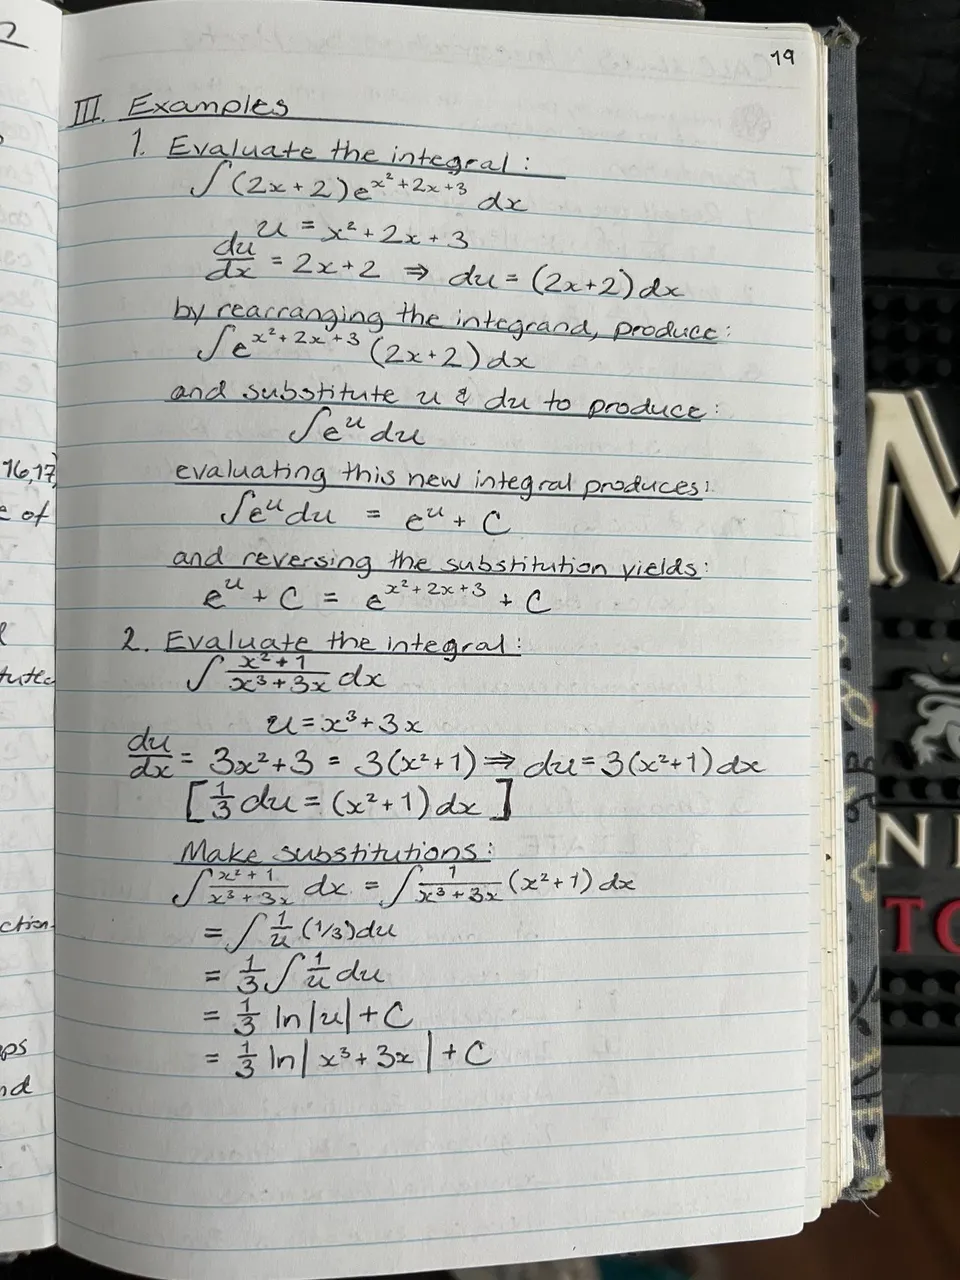 19
III. Examples
1. Evaluate the integral:
∫(2x+2)e^{x²+2x+3} dx
u = x²+2x+3
du/dx = 2x+2 ⇒ du = (2x+2)dx
by rearranging the integrand, produce:
∫e^{x²+2x+3} (2x+2)dx
and substitute u & du to produce:
∫e^u du
evaluating this new integral produces:
∫e^u du = e^u + C
and reversing the substitution yields:
e^u + C = e^{x²+2x+3} + C
2. Evaluate the integral:
∫ (x²+1)/(x³+3x) dx
u = x³+3x
du/dx = 3x²+3 = 3(x²+1) ⇒ du = 3(x²+1)dx
[1/3 du = (x²+1)dx]
Make substitutions:
∫ (x²+1)/(x³+3x) dx = ∫ 1/(x³+3x) (x²+1)dx
= ∫ 1/u (1/3)du
= 1/3 ∫ 1/u du
= 1/3 ln|u| + C
= 1/3 ln|x³+3x| + C
16,17,
of
nd
M
N
TO